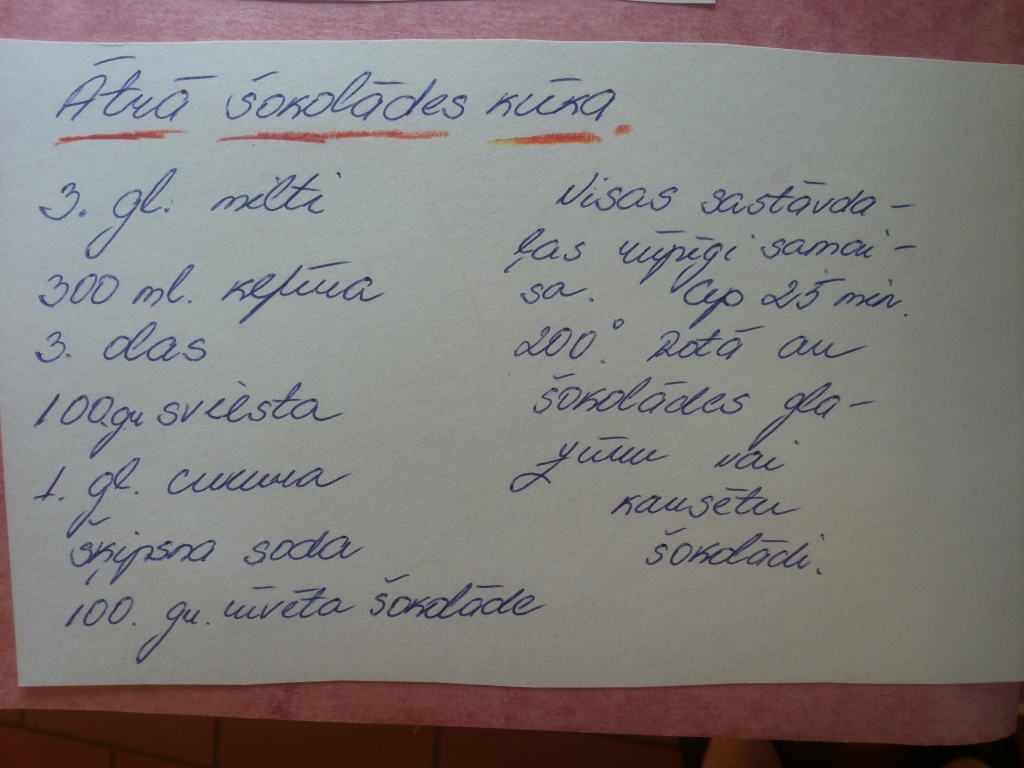 Ātrā šokolādes kūka.
3. gl. milti
300 ml. kefīra
3. olas
100.gr sviesta
1. gl. cukura
šķipsna soda
100. gr. rīvēta šokolāde
Visas sastāvda-
ļas rūpīgi samai-
sa. Cep 25 min.
200°. Rotā ar
šokolādes gla-
zūru vai
kausētu
šokolādi.